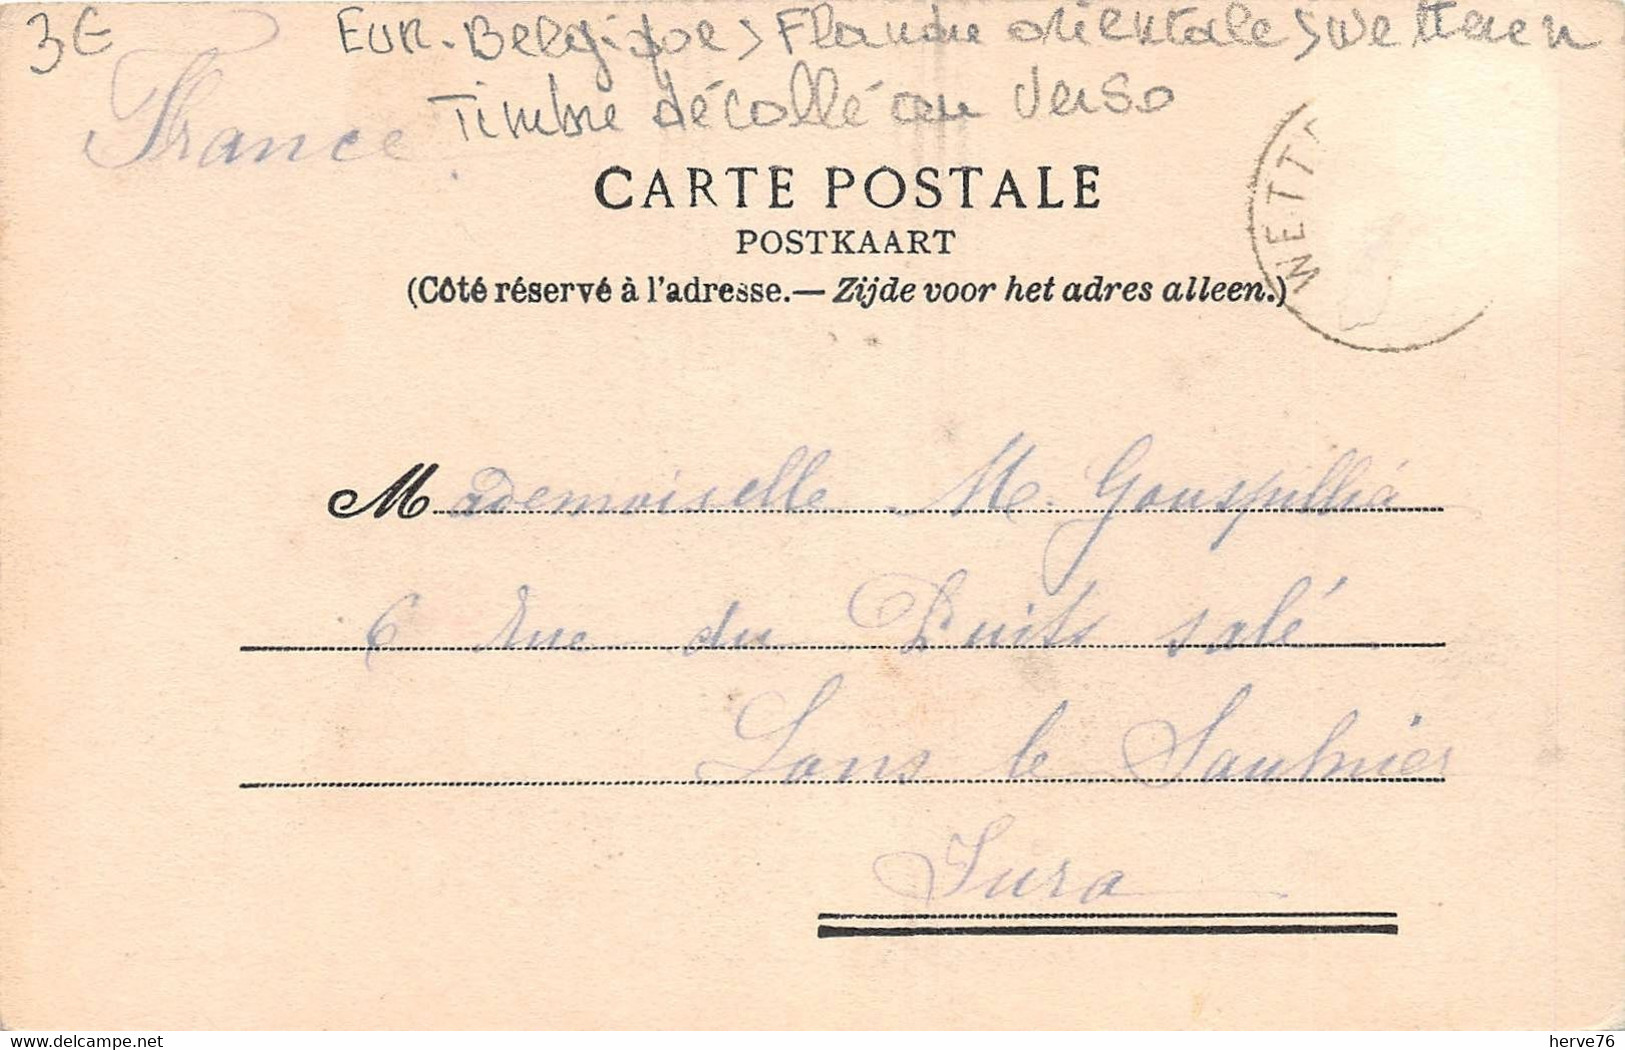 3€ EUR. Belgique > Flandre orientale > Wetteren
Timbre décollé au verso
France
CARTE POSTALE
POSTKAART
(Côté réservé à l'adresse.— Zijde voor het adres alleen.)
WETT
Mademoiselle M. Gouspillié
6 rue du Puits salé
Lons le Saulnier
Jura
herve76